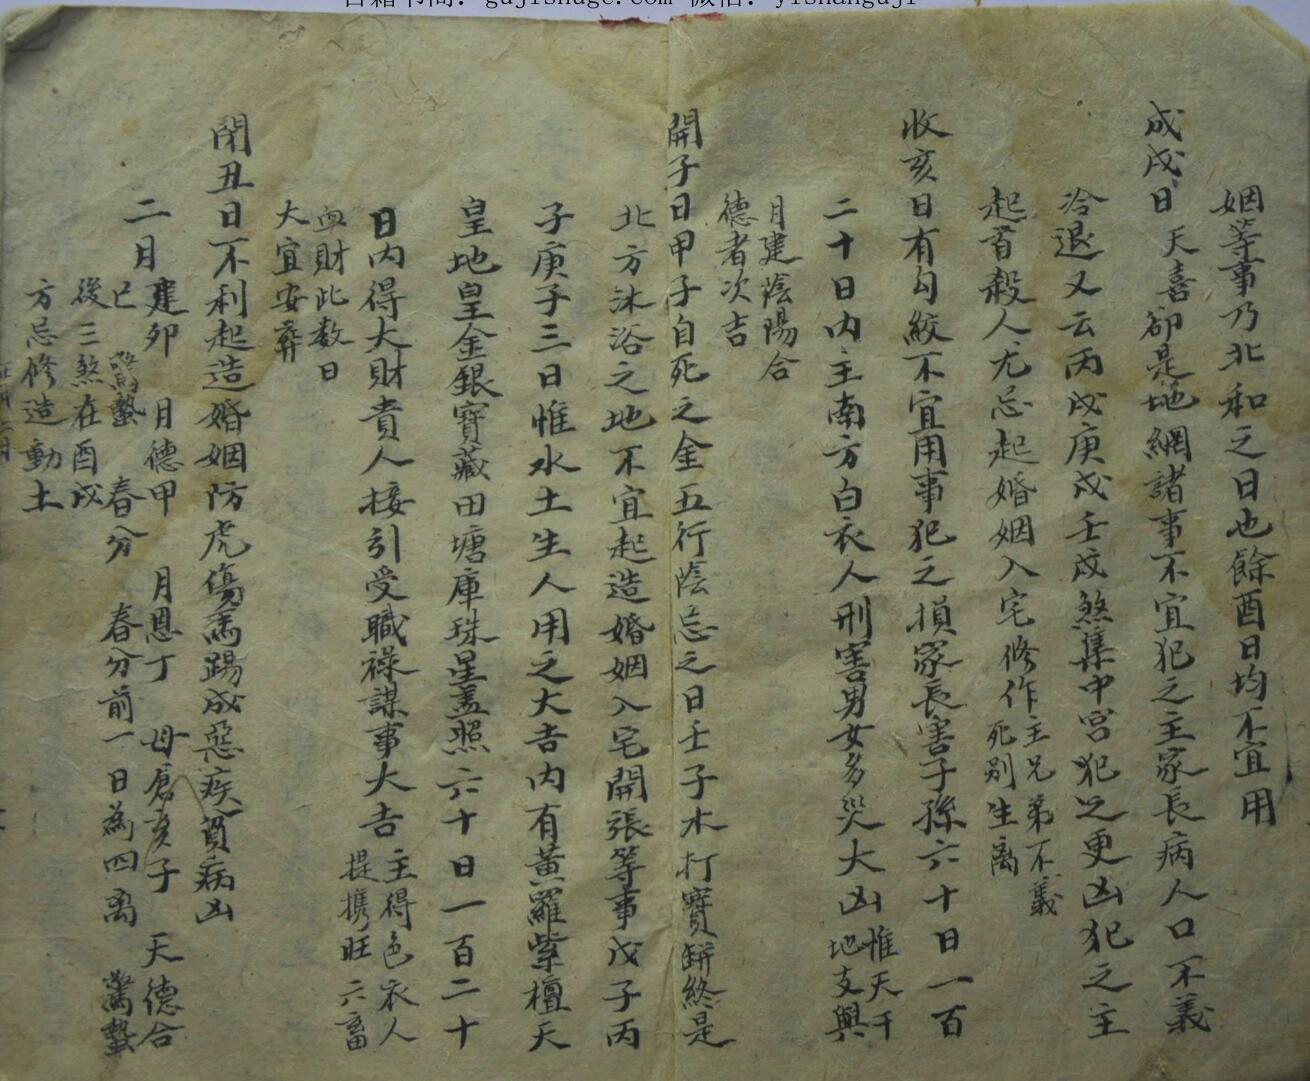 古籍书阁：gujishuge.com 微信：yishanguji
姻等事乃北和之日也餘酉日均不宜用
成戌日天喜卻是地網諸事不宜犯之主家長病人口不義
冷退又云丙戌庚戌壬戌煞集中宮犯之更凶犯之主
起首殺人尤忌起婚姻入宅修作主兄弟不義
死別生离
收亥日有勾絞不宜用事犯之損家長害子孫六十日一百
二十日内主南方白衣人刑害男女多災大凶惟天干
地支與
月建陰陽合
德者次吉
開子日甲子自死之金五行陰忌之日壬子木打寶缾終是
北方沐浴之地不宜起造婚姻入宅開張等事戊子丙
子庚子三日惟水土生人用之大吉内有黃羅紫檀天
皇地皇金銀寶藏田塘庫珠星盖照六十日一百二十
日内得大財貴人接引受職祿謀事大吉主得色衣人
提携旺六畜
血財此数日
大宜安葬
閉丑日不利起造婚姻防虎傷馬踢成惡疾貧病凶
二月建卯 月德甲 月恩丁 母倉亥子 天德合
巳 驚蟄 春分 春分前一日為四离 驚蟄
後三煞在酉戌
方忌修造動土